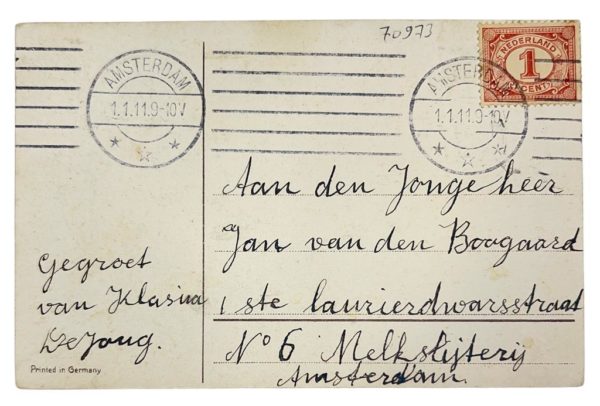 70973
NEDERLAND
1
CENT
AMSTERDAM
1.1.11.9-10V
AMSTERDAM
1.1.11.9-10V
Aan den Jongeheer
Jan van den Boogaard
1 ste laurierdwarsstraat
No 6 Melkslijterij
Amsterdam.
Gegroet
van Klasina
De Jong.
Printed in Germany